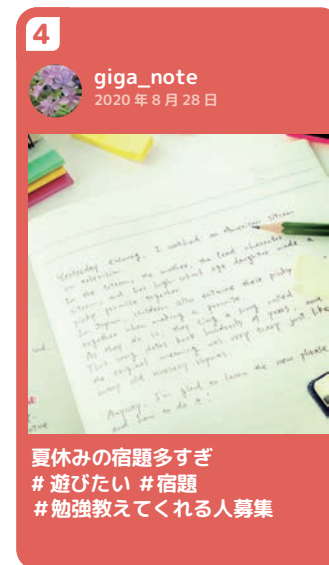 4
giga_note
2020年8月28日
Yesterday evening, I watched an American sitcom
on television.
In the sitcom, the mother, the lead character
sitcom, and her high-school age daughter made a
pinky promise together.
In Japan, children also entwine their pinky
together when making a promise.
As they do it, they sing a song called
This song dates back hundreds of years, and
the original meaning was very scary just like
many old nursery rhymes.
Anyway, I'm glad to learn the new phrase
and how to do it!
夏休みの宿題多すぎ
# 遊びたい #宿題
#勉強教えてくれる人募集